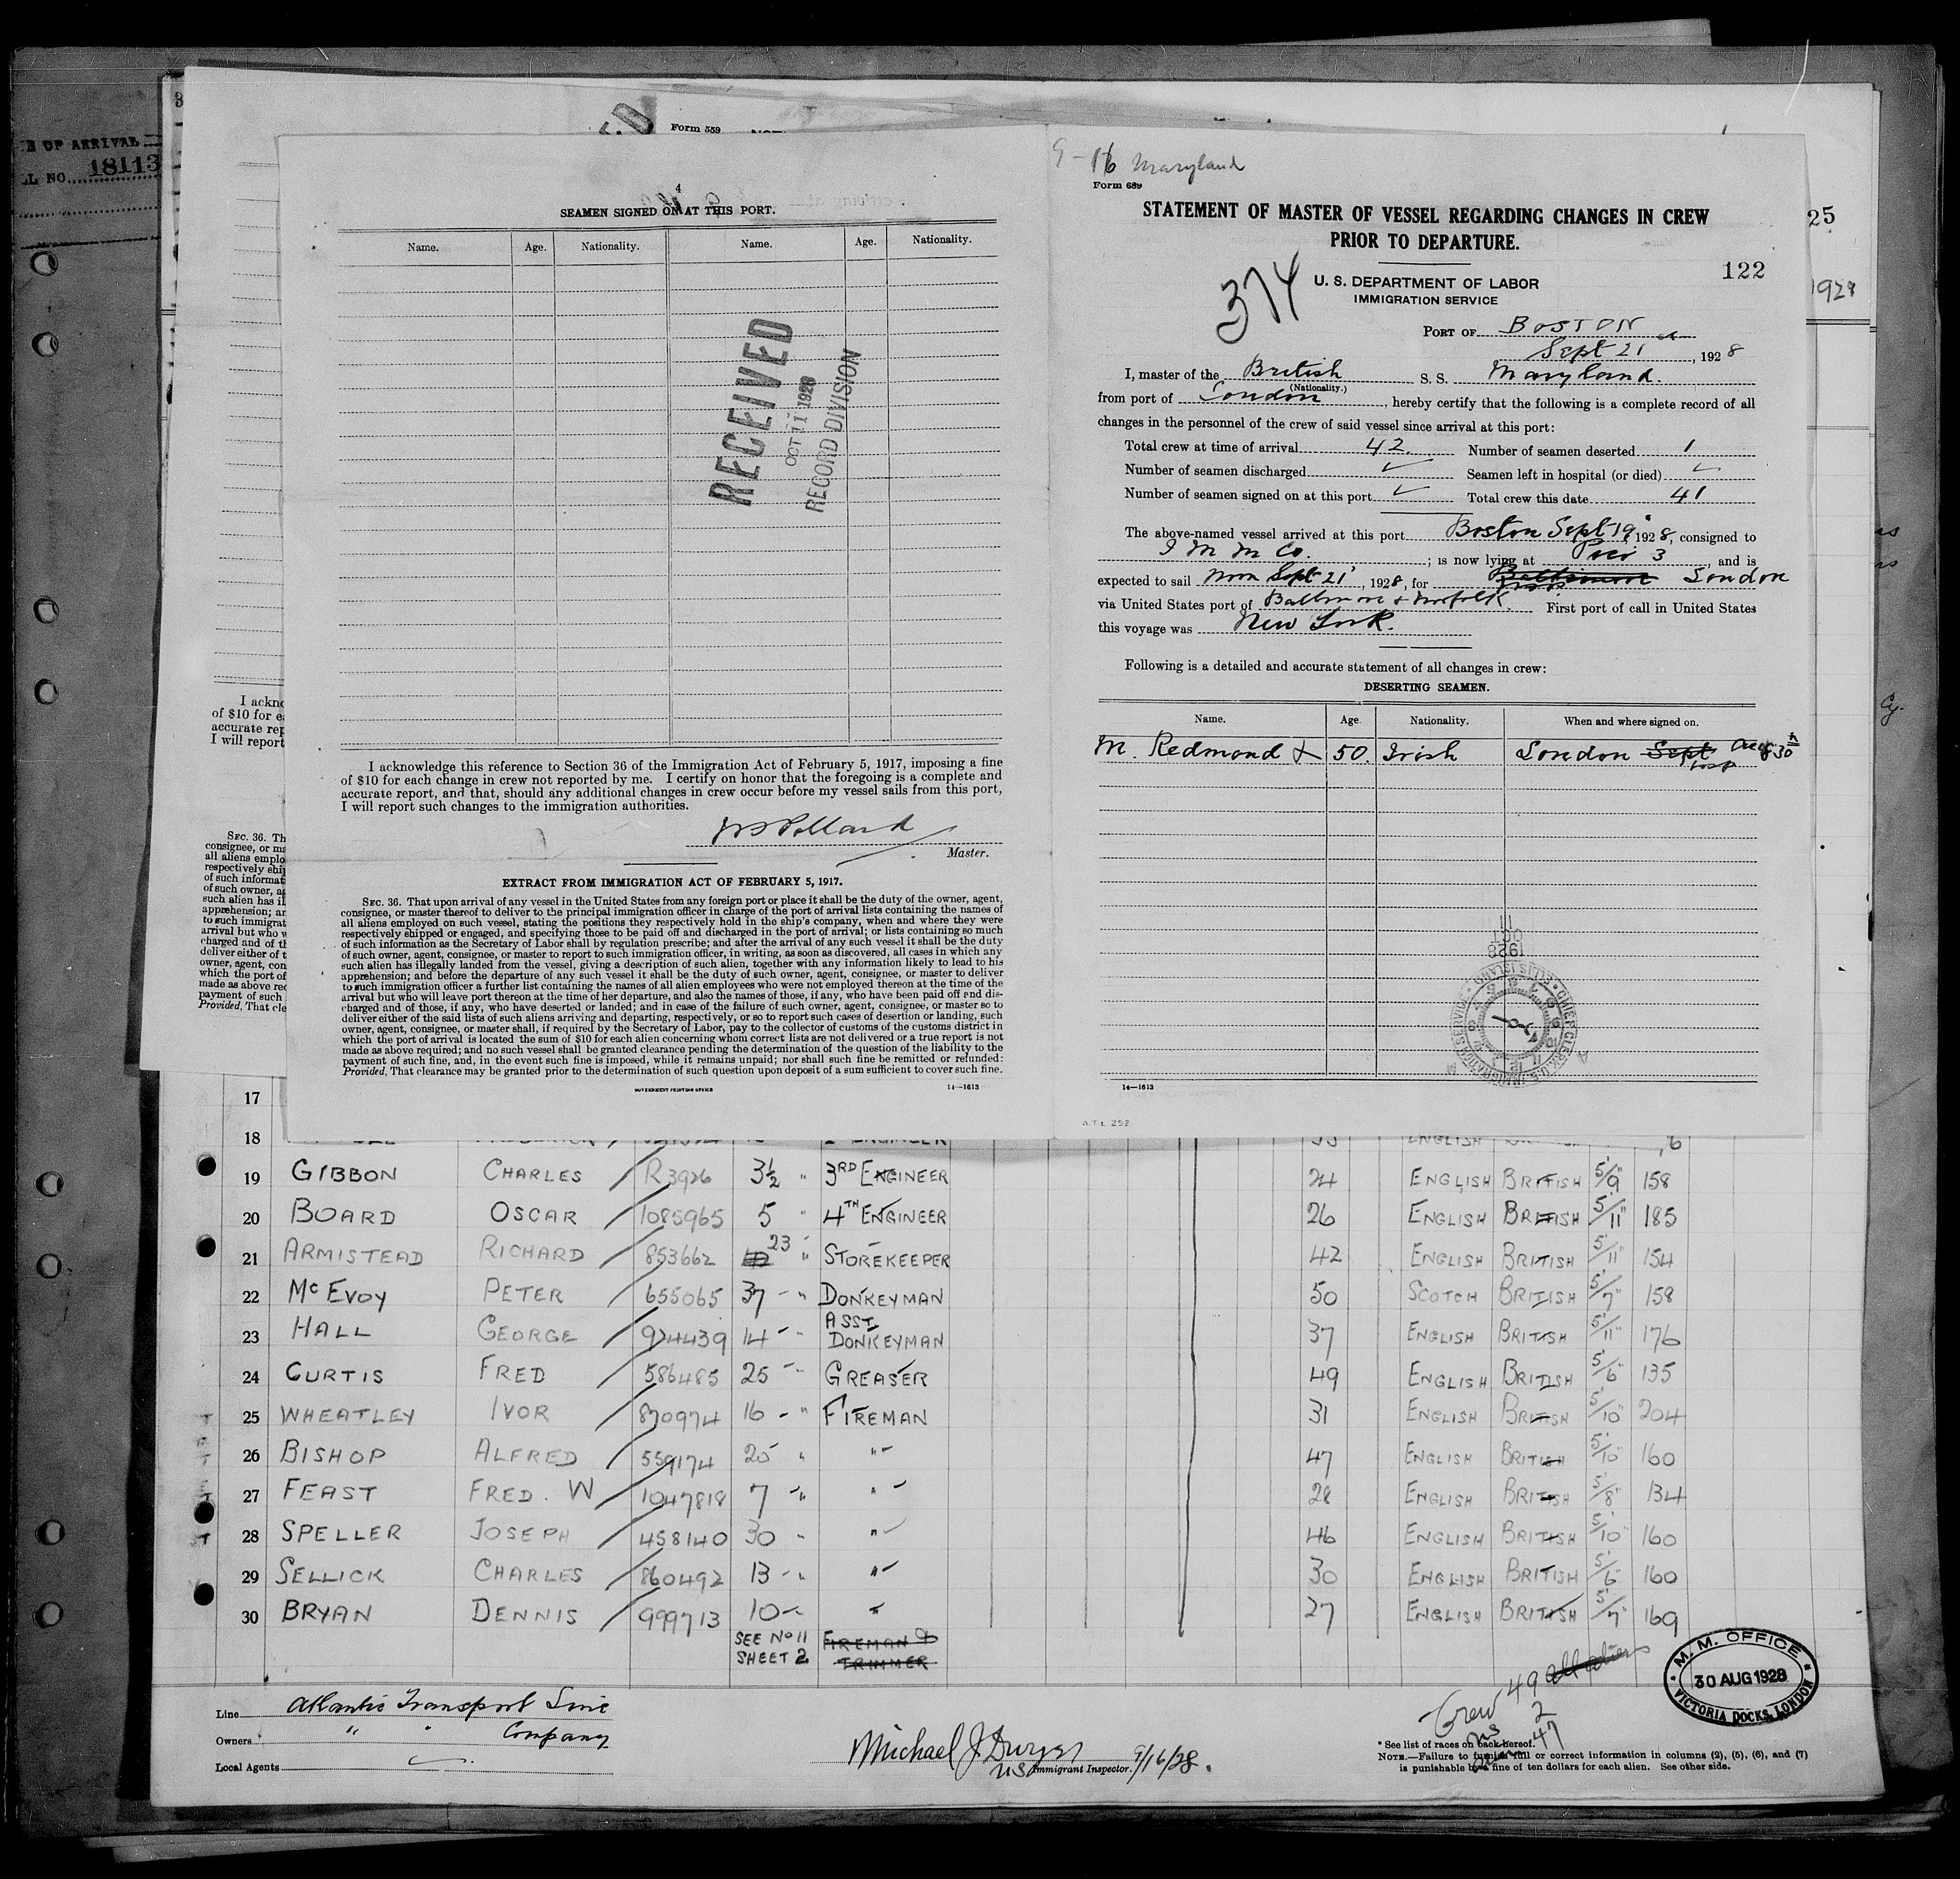 E OF ARRIVAL
LL NO. 18113
Form 559
4
SEAMEN SIGNED ON AT THIS PORT.
Name. Age. Nationality. Name. Age. Nationality.
RECEIVED
OCT 11 1928
RECORD DIVISION
I acknowledge this reference to Section 36 of the Immigration Act of February 5, 1917, imposing a fine
of $10 for each change in crew not reported by me. I certify on honor that the foregoing is a complete and
accurate report, and that, should any additional changes in crew occur before my vessel sails from this port,
I will report such changes to the immigration authorities.
Pollard
Master.
EXTRACT FROM IMMIGRATION ACT OF FEBRUARY 5, 1917.
SEC. 36. That upon arrival of any vessel in the United States from any foreign port or place it shall be the duty of the owner, agent,
consignee, or master thereof to deliver to the principal immigration officer in charge of the port of arrival lists containing the names of
all aliens employed on such vessel, stating the positions they respectively hold in the ship's company, when and where they were
respectively shipped or engaged, and specifying those to be paid off and discharged in the port of arrival; or lists containing so much
of such information as the Secretary of Labor shall by regulation prescribe; and after the arrival of any such vessel it shall be the duty
of such owner, agent, consignee, or master to report to such immigration officer, in writing, as soon as discovered, all cases in which any
such alien has illegally landed from the vessel, giving a description of such alien, together with any information likely to lead to his
apprehension; and before the departure of any such vessel it shall be the duty of such owner, agent, consignee, or master to deliver
to such immigration officer a further list containing the names of all alien employees who were not employed thereon at the time of the
arrival but who will leave port thereon at the time of her departure, and also the names of those, if any, who have been paid off and dis-
charged and of those, if any, who have deserted or landed; and in case of the failure of such owner, agent, consignee, or master so to
deliver either of the said lists of such aliens arriving and departing, respectively, or so to report such cases of desertion or landing, such
owner, agent, consignee, or master shall, if required by the Secretary of Labor, pay to the collector of customs of the customs district in
which the port of arrival is located the sum of $10 for each alien concerning whom correct lists are not delivered or a true report is not
made as above required; and no such vessel shall be granted clearance pending the determination of the question of the liability to the
payment of such fine, and, in the event such fine is imposed, while it remains unpaid; nor shall such fine be remitted or refunded:
Provided, That clearance may be granted prior to the determination of such question upon deposit of a sum sufficient to cover such fine.
GOVERNMENT PRINTING OFFICE 14—1613
9-16 Maryland
Form 689
STATEMENT OF MASTER OF VESSEL REGARDING CHANGES IN CREW
PRIOR TO DEPARTURE.
374
122
U. S. DEPARTMENT OF LABOR
IMMIGRATION SERVICE
PORT OF BOSTON
Sept 21, 1928
I, master of the British S. S. Maryland.
(Nationality.)
from port of London, hereby certify that the following is a complete record of all
changes in the personnel of the crew of said vessel since arrival at this port:
Total crew at time of arrival 42. Number of seamen deserted 1
Number of seamen discharged ✓ Seamen left in hospital (or died) ✓
Number of seamen signed on at this port ✓ Total crew this date 41
The above-named vessel arrived at this port Boston Sept 19, 1928, consigned to
I M M Co. ; is now lying at Pier 3, and is
expected to sail Noon Sept 21, 1928, for Baltimore London
via United States port of Baltimore & Norfolk. First port of call in United States
this voyage was New York.
Following is a detailed and accurate statement of all changes in crew:
DESERTING SEAMEN.
Name. Age. Nationality. When and where signed on.
M. Redmond X 50. Irish London Sept Aug 30th
1928
OCT
11
CHIEF CLERK U.S. IMMIGRATION SERVICE ELLIS ISLAND
14—1613
A.T.L. 252.
25
1928
I ackno
of $10 for e
accurate rep
I will report
SEC. 36. Th
consignee, or ma
all aliens emplo
respectively ship
of such informat
of such owner, a
such alien has il
apprehension; an
to such immigrat
arrival but who w
charged and of th
deliver either of t
owner, agent, con
which the port of
made as above rec
payment of such
Provided, That cle
17
18 ENGINEER ENGLISH
19 GIBBON CHARLES R3926 3½ " 3RD ENGINEER 24 ENGLISH BRITISH 5'/9" 158
20 BOARD OSCAR 1085965 5 " 4TH ENGINEER 26 ENGLISH BRITISH 5'/11" 185
21 ARMISTEAD RICHARD 853662 23 " STOREKEEPER 42 ENGLISH BRITISH 5'/11" 154
22 McEVOY PETER 655065 37 " DONKEYMAN 50 SCOTCH BRITISH 5'/7" 158
23 HALL GEORGE 924439 14 " ASST DONKEYMAN 37 ENGLISH BRITISH 5'/11" 176
24 CURTIS FRED 586485 25 " GREASER 49 ENGLISH BRITISH 5'/6" 135
25 WHEATLEY IVOR 870974 16 " FIREMAN 31 ENGLISH BRITISH 5'/10" 204
26 BISHOP ALFRED 559174 25 " " 47 ENGLISH BRITISH 5'/10" 160
27 FEAST FRED. W 1047818 7 " " 28 ENGLISH BRITISH 5'/8" 134
28 SPELLER JOSEPH 458140 30 " " 46 ENGLISH BRITISH 5'/10" 160
29 SELLICK CHARLES 860492 13 " " 30 ENGLISH BRITISH 5'/6" 160
30 BRYAN DENNIS 999713 10 " " 27 ENGLISH BRITISH 5'/7" 169
SEE No 11 FIREMAN &
SHEET 2 TRIMMER
Line Atlantic Transport Line
Owners " " Company
Local Agents
Michael J Dwyer 9/16/28.
Immigrant Inspector.
Crew 49
2
47
M. M. OFFICE
30 AUG 1928
VICTORIA DOCKS, LONDON
* See list of races on back hereof.
NOTE.—Failure to furnish full or correct information in columns (2), (5), (6), and (7)
is punishable by a fine of ten dollars for each alien. See other side.